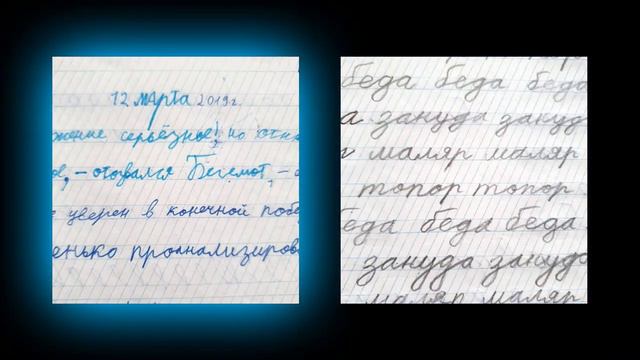 12 марта 2019г.
ожение серьёзное, но отни
ое, – отозвался Бегемот, –
е уверен в конечной побе
енько проанализирова
беда беда беда
а зануда зануд
маляр маляр
топор топор
беда беда беда
зануда зануда
маляр маляр